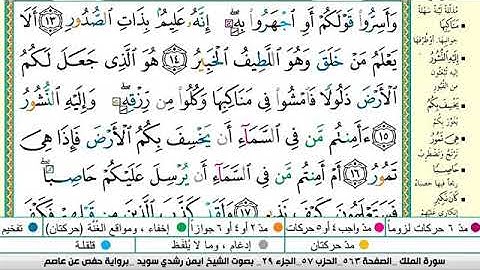 وَأَسِرُّوا۟ قَوْلَكُمْ أَوِ ٱجْهَرُوا۟ بِهِۦٓ ۖ إِنَّهُۥ عَلِيمٌۢ بِذَاتِ ٱلصُّدُورِ ١٣ أَلَا
يَعْلَمُ مَنْ خَلَقَ وَهُوَ ٱللَّطِيفُ ٱلْخَبِيرُ ١٤ هُوَ ٱلَّذِى جَعَلَ لَكُمُ
ٱلْأَرْضَ ذَلُولًا فَٱمْشُوا۟ فِى مَنَاكِبِهَا وَكُلُوا۟ مِن رِّزْقِهِۦ ۖ وَإِلَيْهِ ٱلنُّشُورُ
١٥ ءَأَمِنتُم مَّن فِى ٱلسَّمَآءِ أَن يَخْسِفَ بِكُمُ ٱلْأَرْضَ فَإِذَا هِىَ
تَمُورُ ١٦ أَمْ أَمِنتُم مَّن فِى ٱلسَّمَآءِ أَن يُرْسِلَ عَلَيْكُمْ حَاصِبًا ۖ
فَسَتَعْلَمُونَ كَيْفَ نَذِيرِ ١٧ وَلَقَدْ كَذَّبَ ٱلَّذِينَ مِن قَبْلِهِمْ فَكَيْفَ
مُذَلَّلَةً لَيِّنَةً سَهْلَةً
مَنَاكِبِهَا
جوانبها، أو طُرقها
إِلَيْهِ النُّشُورُ
يَخْسِفَ بِكُمُ
هِيَ تَمُورُ
حَاصِبًا
مدّ ٦ حركات لزوماً
مدّ واجب ٤ أو ٥ حركات
مدّ ٢ أو ٤ أو ٦ جوازاً
إخفاء، ومواقع الغُنَّة (حركتان)
تفخيم
مدّ حركتان
إدغام، وما لا يُلفَظ
قلقلة
سورة الملك _الصفحة ٥٦٣_الحزب ٥٧_الجزء ٢٩_ بصوت الشيخ ايمن رشدي سويد _برواية حفص عن عاصم